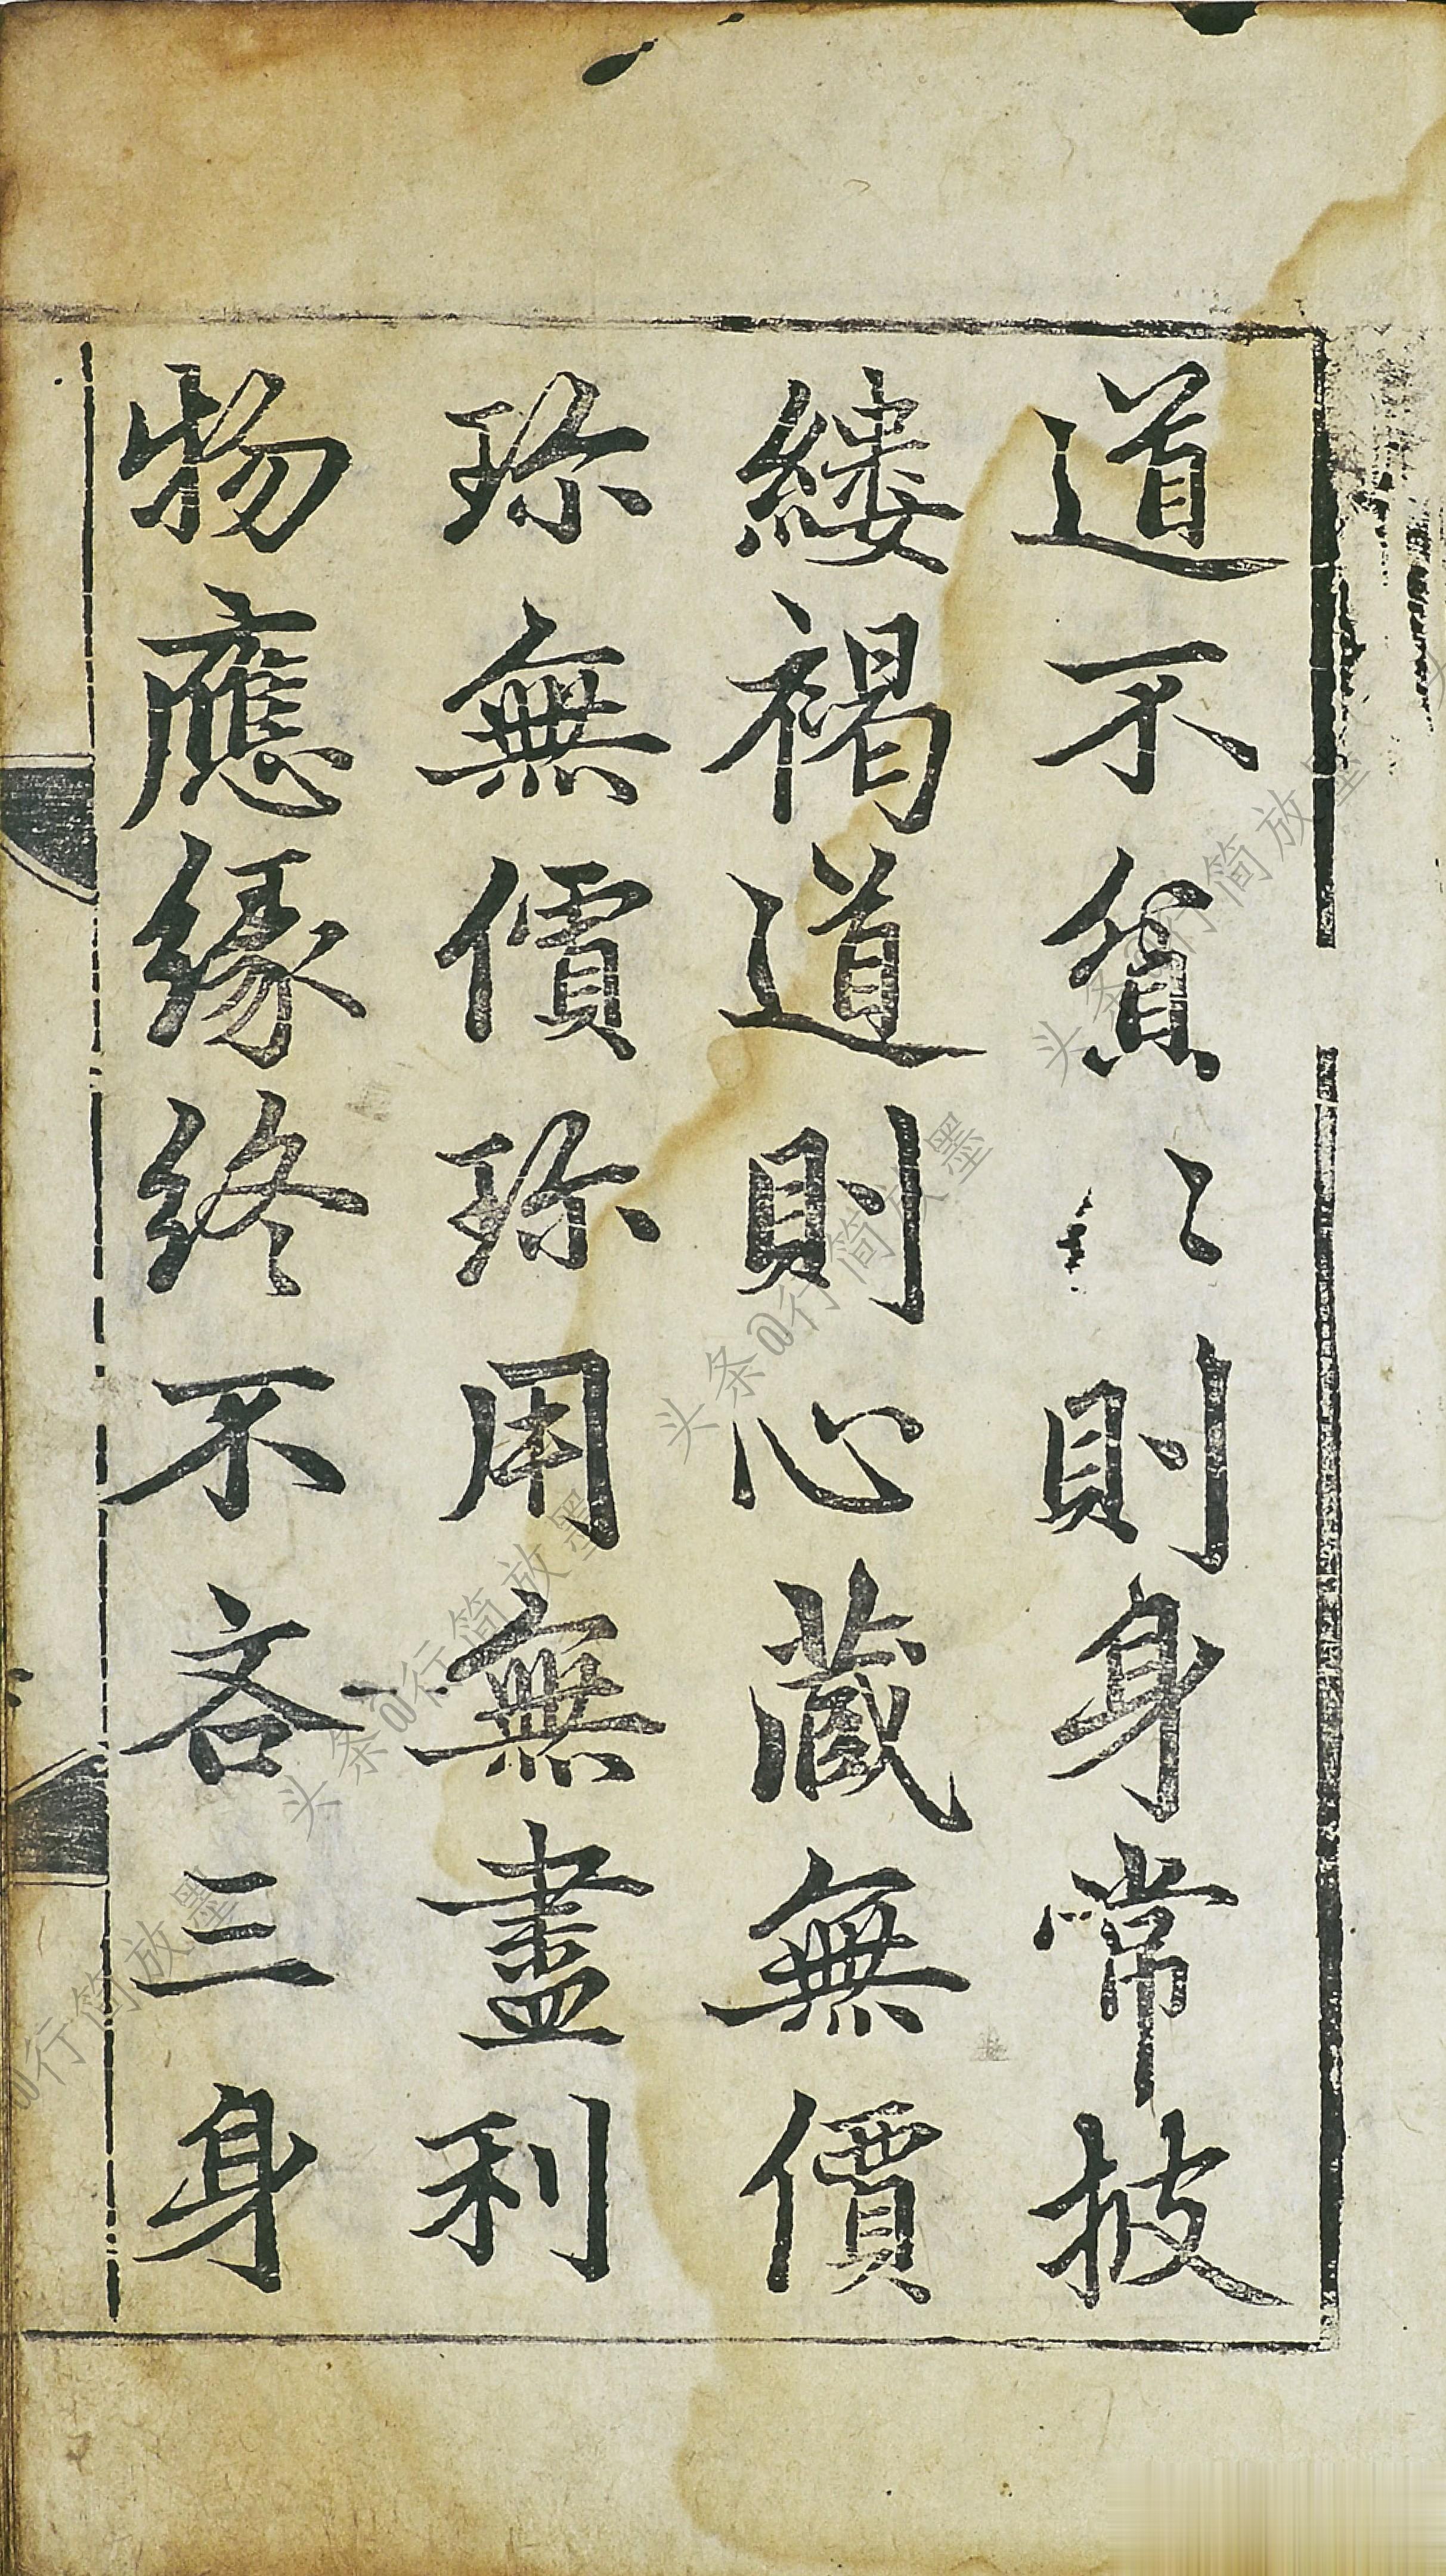 道不貧〻則身常披
縷褐道則心蔵無價
珎無價珎用無盡利
物應縁終不吝三身
头条@行简放墨
头条@行简放墨
头条@行简放墨
@行简放墨